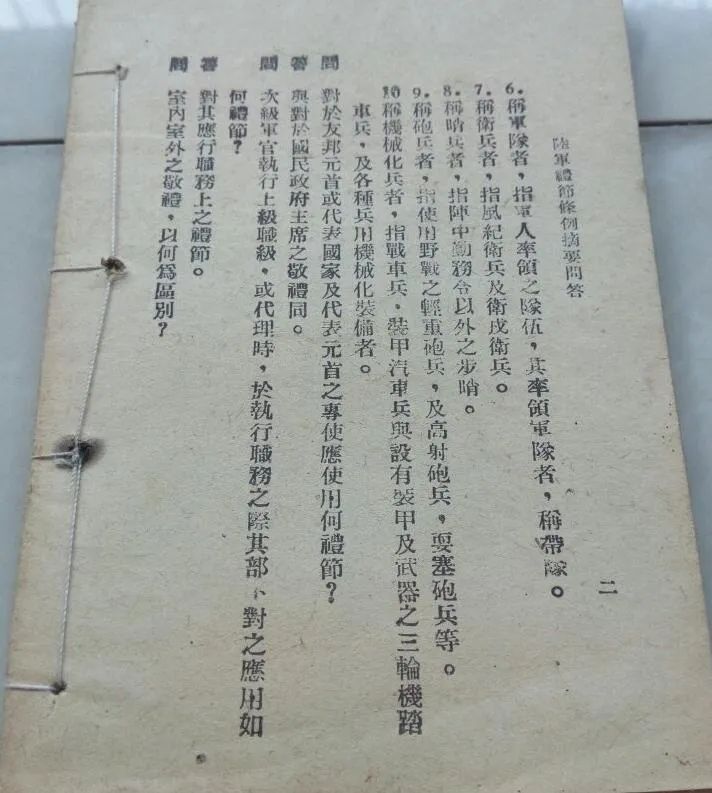 陸軍禮節條例摘要問答
二
6.稱軍隊者,指軍人率領之隊伍,其率領軍隊者,稱帶隊。
7.稱衛兵者,指風紀衛兵及衛戍衛兵。
8.稱哨兵者,指陣中勤務令以外之步哨。
9.稱砲兵者,指使用野戰之輕重砲兵,及高射砲兵,要塞砲兵等。
10.稱機械化兵者,指戰車兵,裝甲汽車兵與設有裝甲及武器之三輪機踏
車兵,及各種兵用機械化裝備者。
問 對於友邦元首或代表國家及代表元首之專使應使用何禮節?
答 與對於國民政府主席之敬禮同。
問 次級軍官執行上級職級,或代理時,於執行職務之際其部下對之應用如
何禮節?
答 對其應行職務上之禮節。
問 室內室外之敬禮,以何為區別?